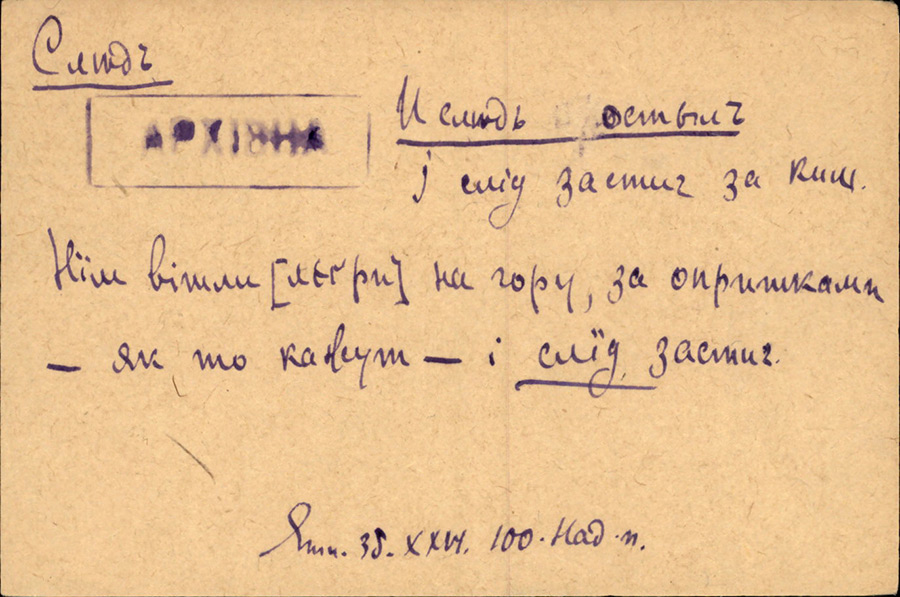 Слѣдъ
АРХІВНА
И слѣдъ простылъ
і слід застиг за ким.
Нїм вішли [лєґри] на гору, за опришками
— як то кажут — і слїд застиг.
Етн. Зб. XXVI. 100. Над. п.